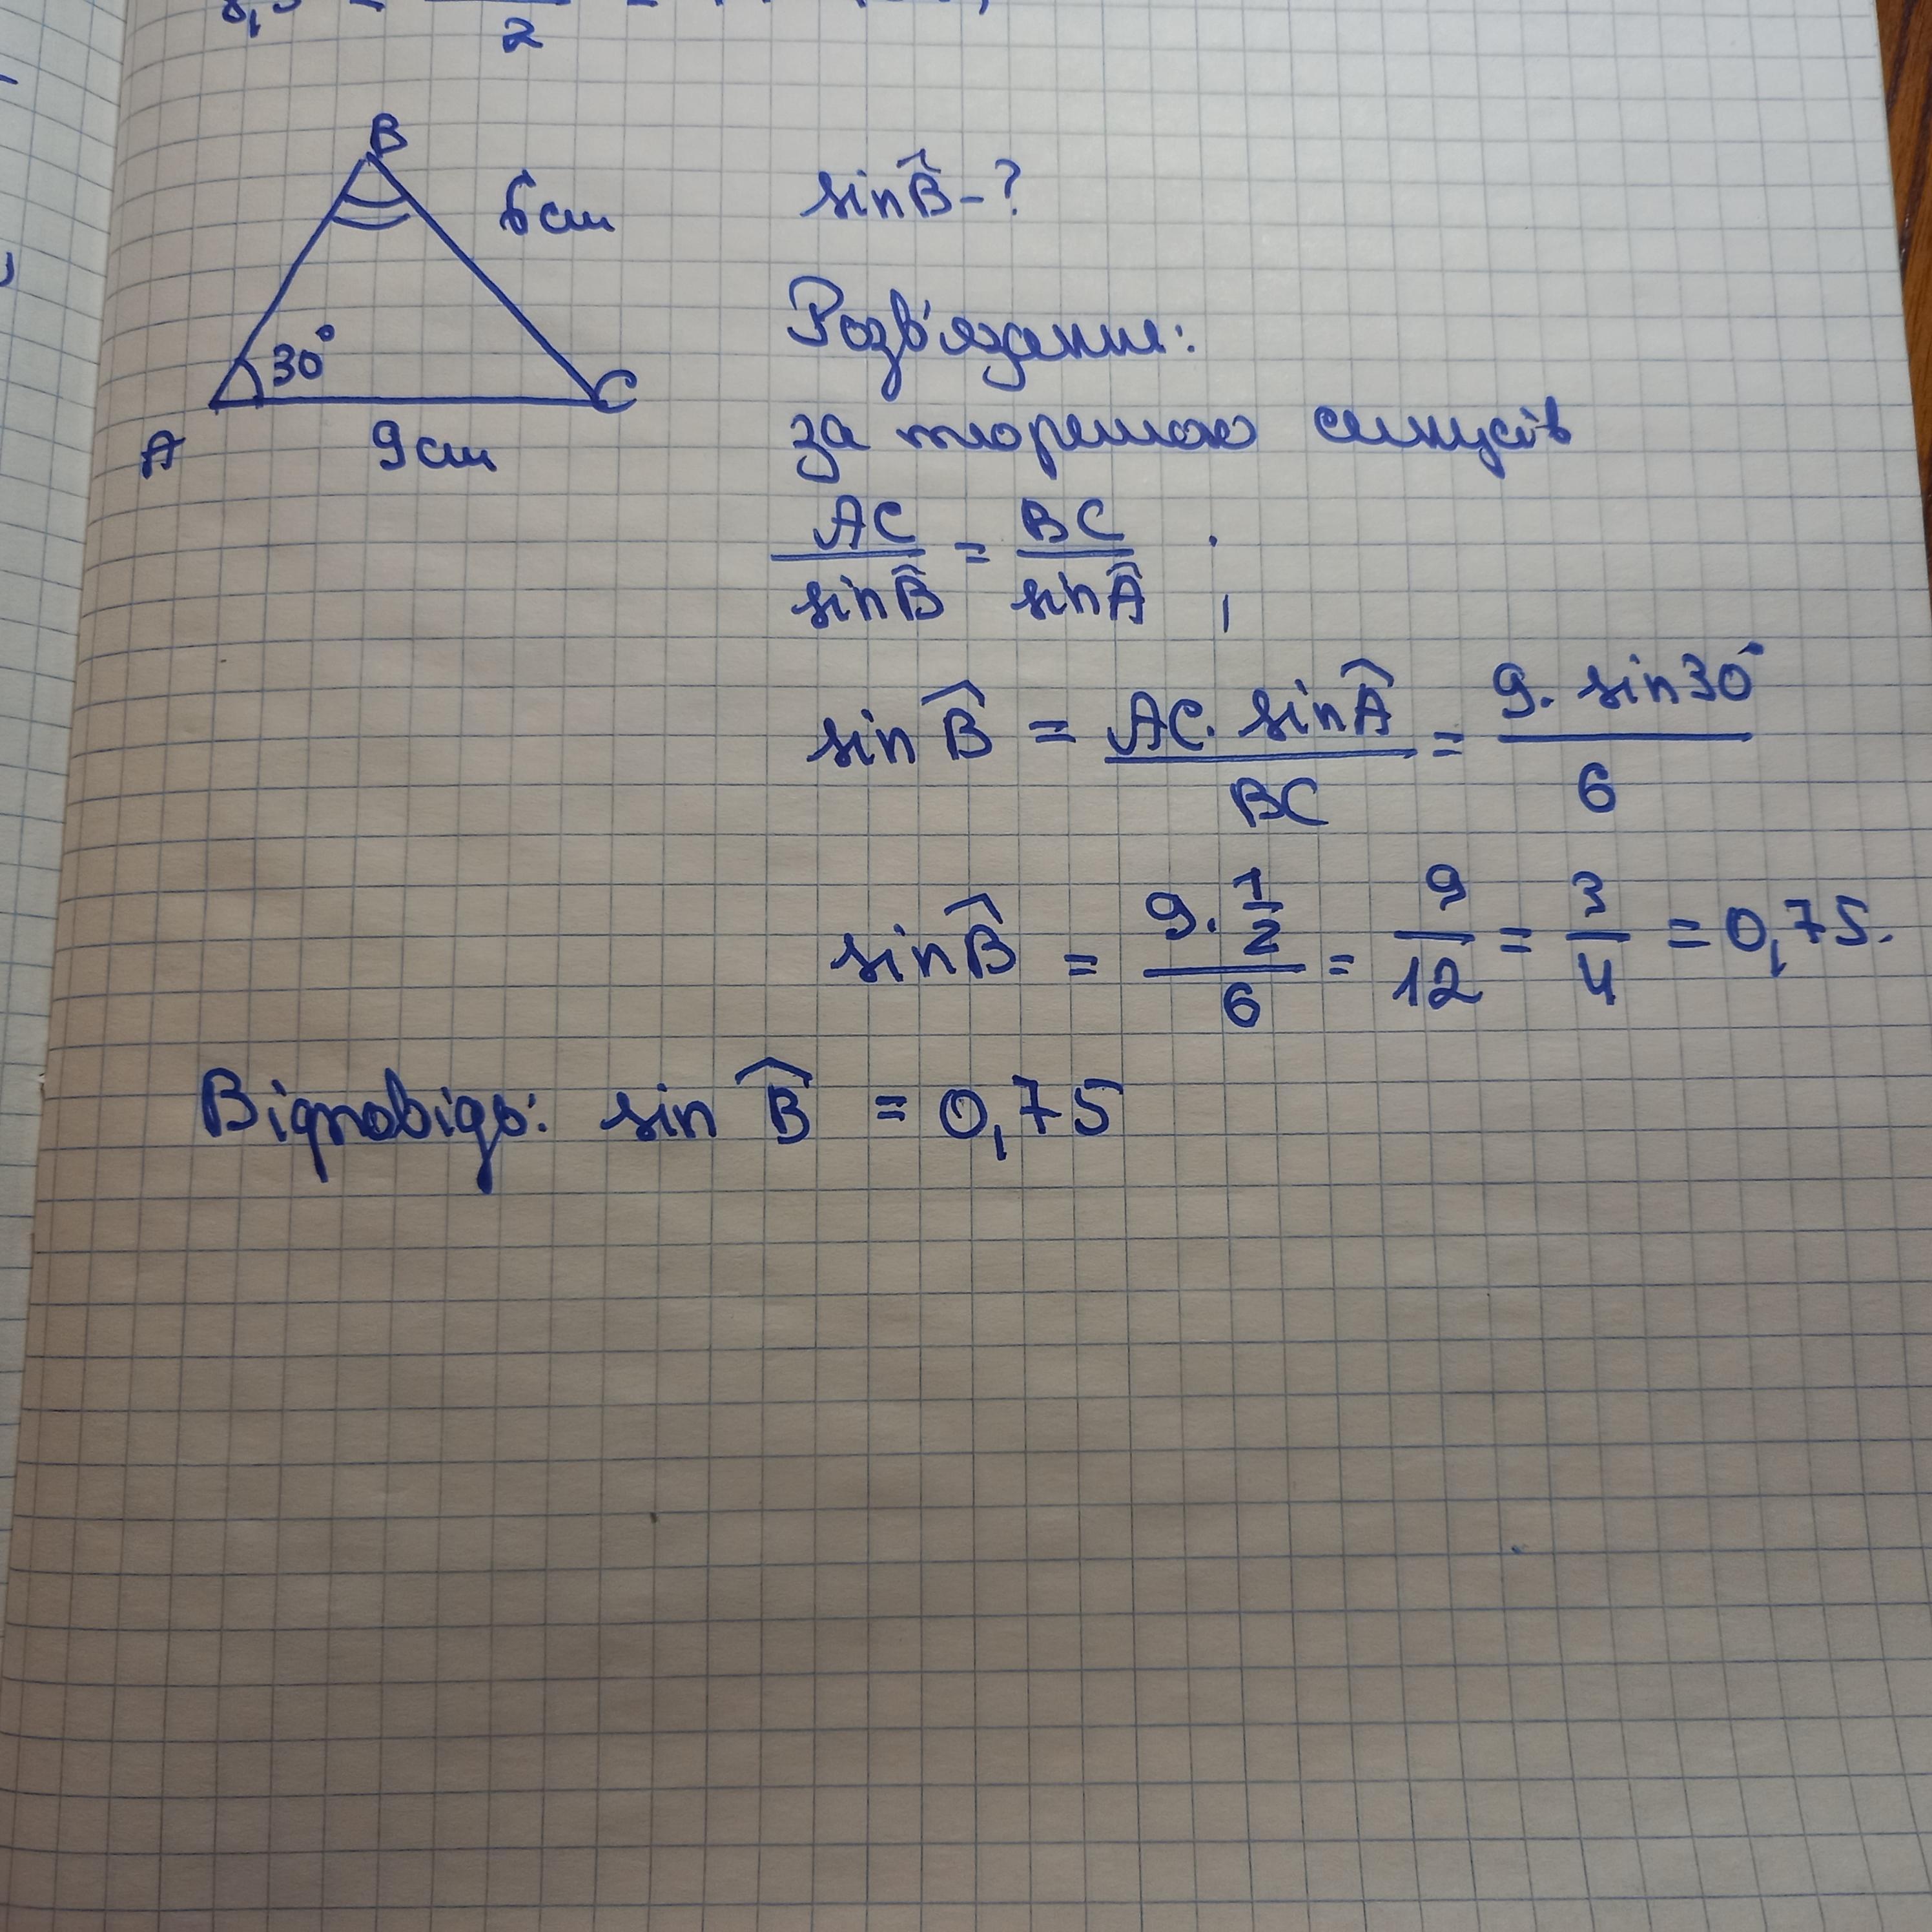 2
B
6 см
30°
A
9 см
C
sin B̂ - ?
Розв'язання:
за теоремою синусів
AC / sin B̂ = BC / sin Â ;
sin B̂ = AC · sin Â / BC = 9 · sin 30° / 6
sin B̂ = 9 · 1/2 / 6 = 9/12 = 3/4 = 0,75.
Відповідь: sin B̂ = 0,75